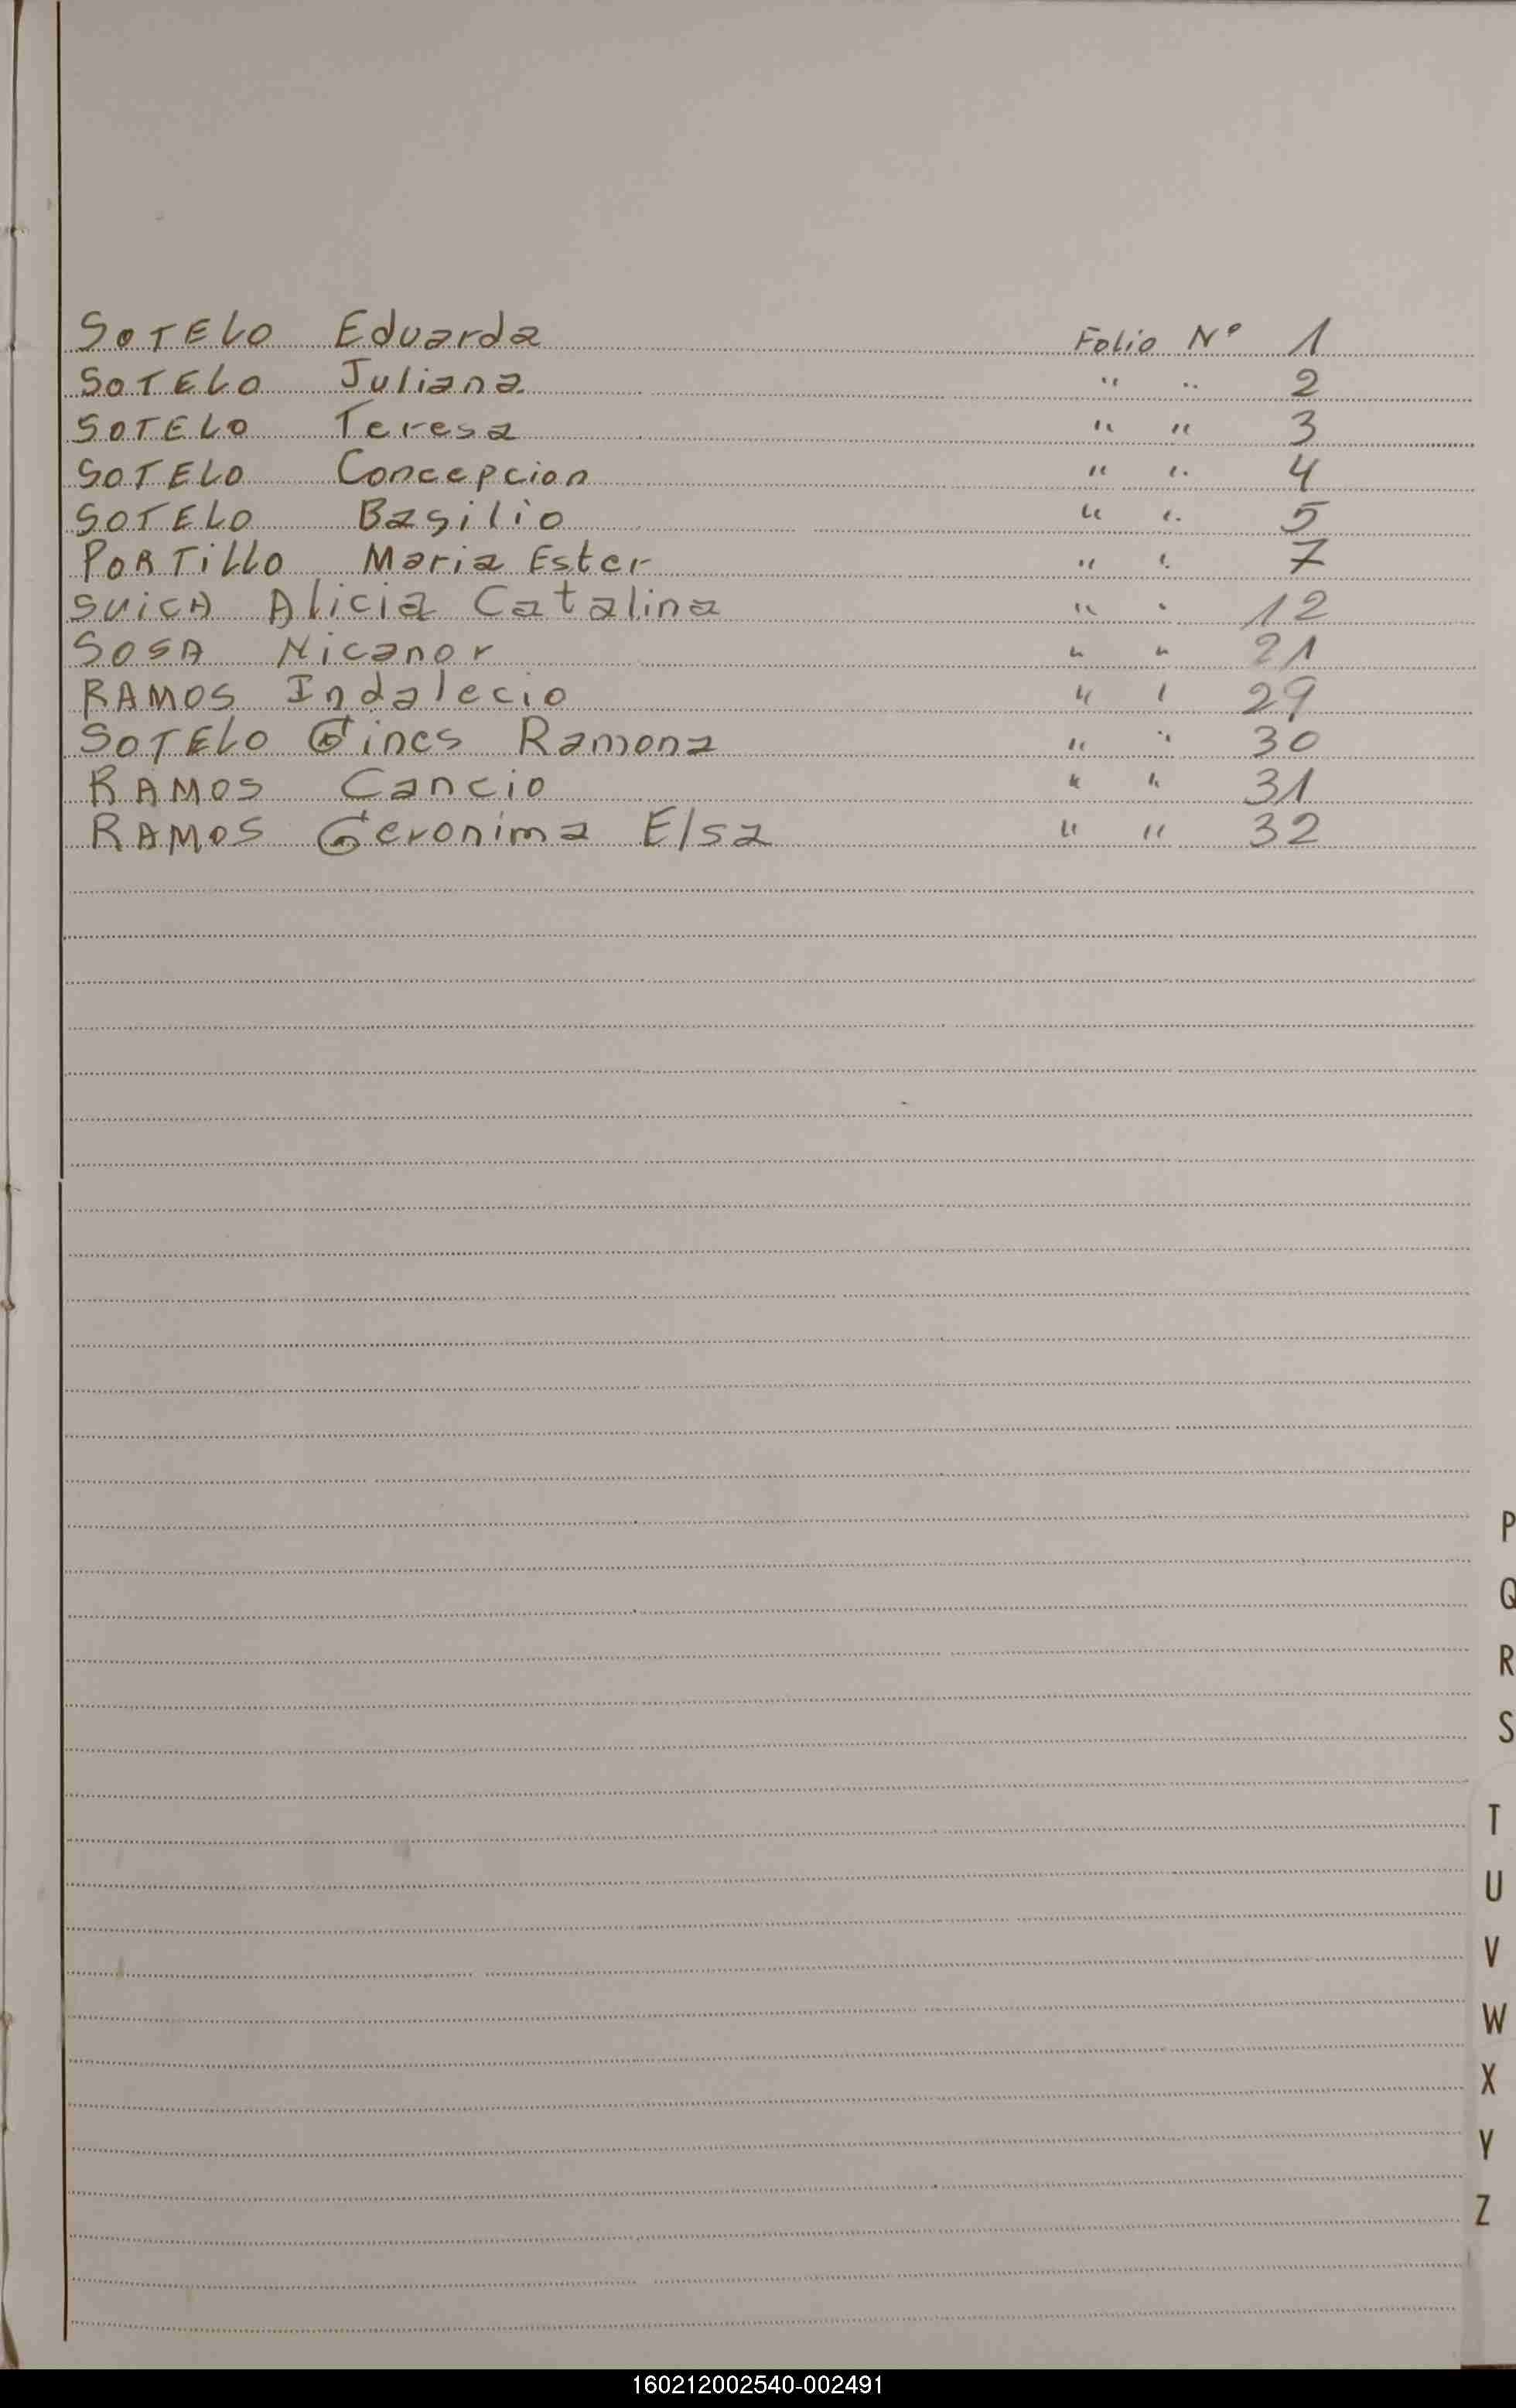 SOTELO Eduarda Folio Nº 1
SOTELO Juliana " " 2
SOTELO Teresa " " 3
SOTELO Concepcion " " 4
SOTELO Basilio " " 5
PORTiLLO Maria Ester " " 7
SUiCA Alicia Catalina " " 12
SOSA Nicanor " " 21
RAMOS Indalecio " " 29
SOTELO Gines Ramona " " 30
RAMOS Cancio " " 31
RAMOS Geronima Elsa " " 32
P
Q
R
S
T
U
V
W
X
Y
Z
160212002540-002491